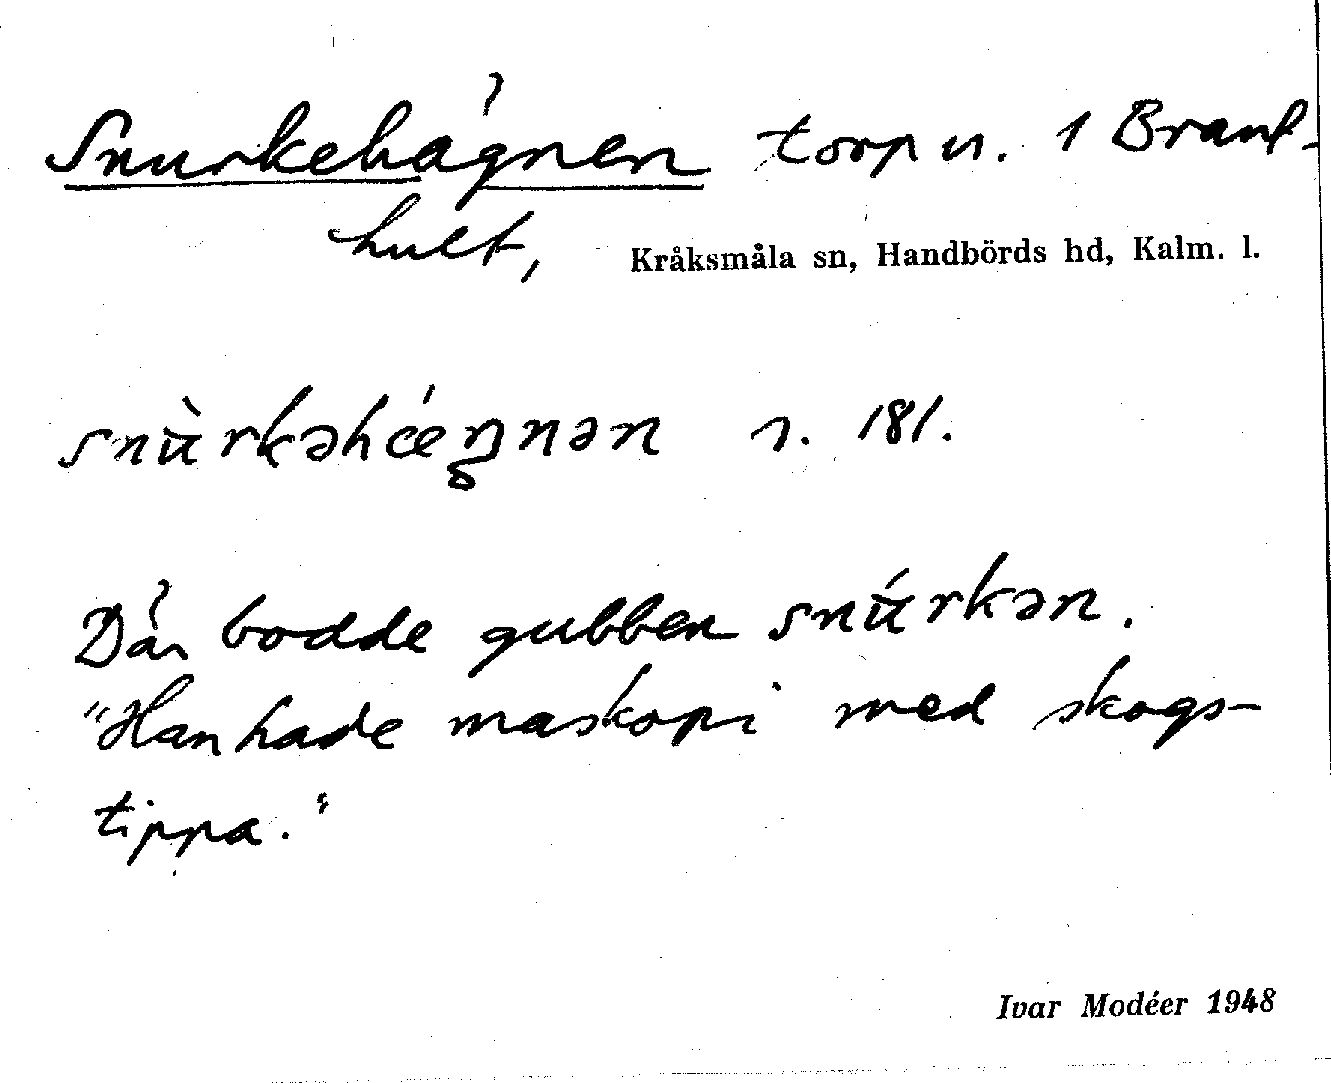 Snurkehägnen torp u. 1 Brant-
hult, Kråksmåla sn, Handbörds hd, Kalm. l.
snùrkəhǽŋnən s. 181.
Där bodde gubben snúrkən.
"Han hade maskopi med skogs-
tippa."
Ivar Modéer 1948